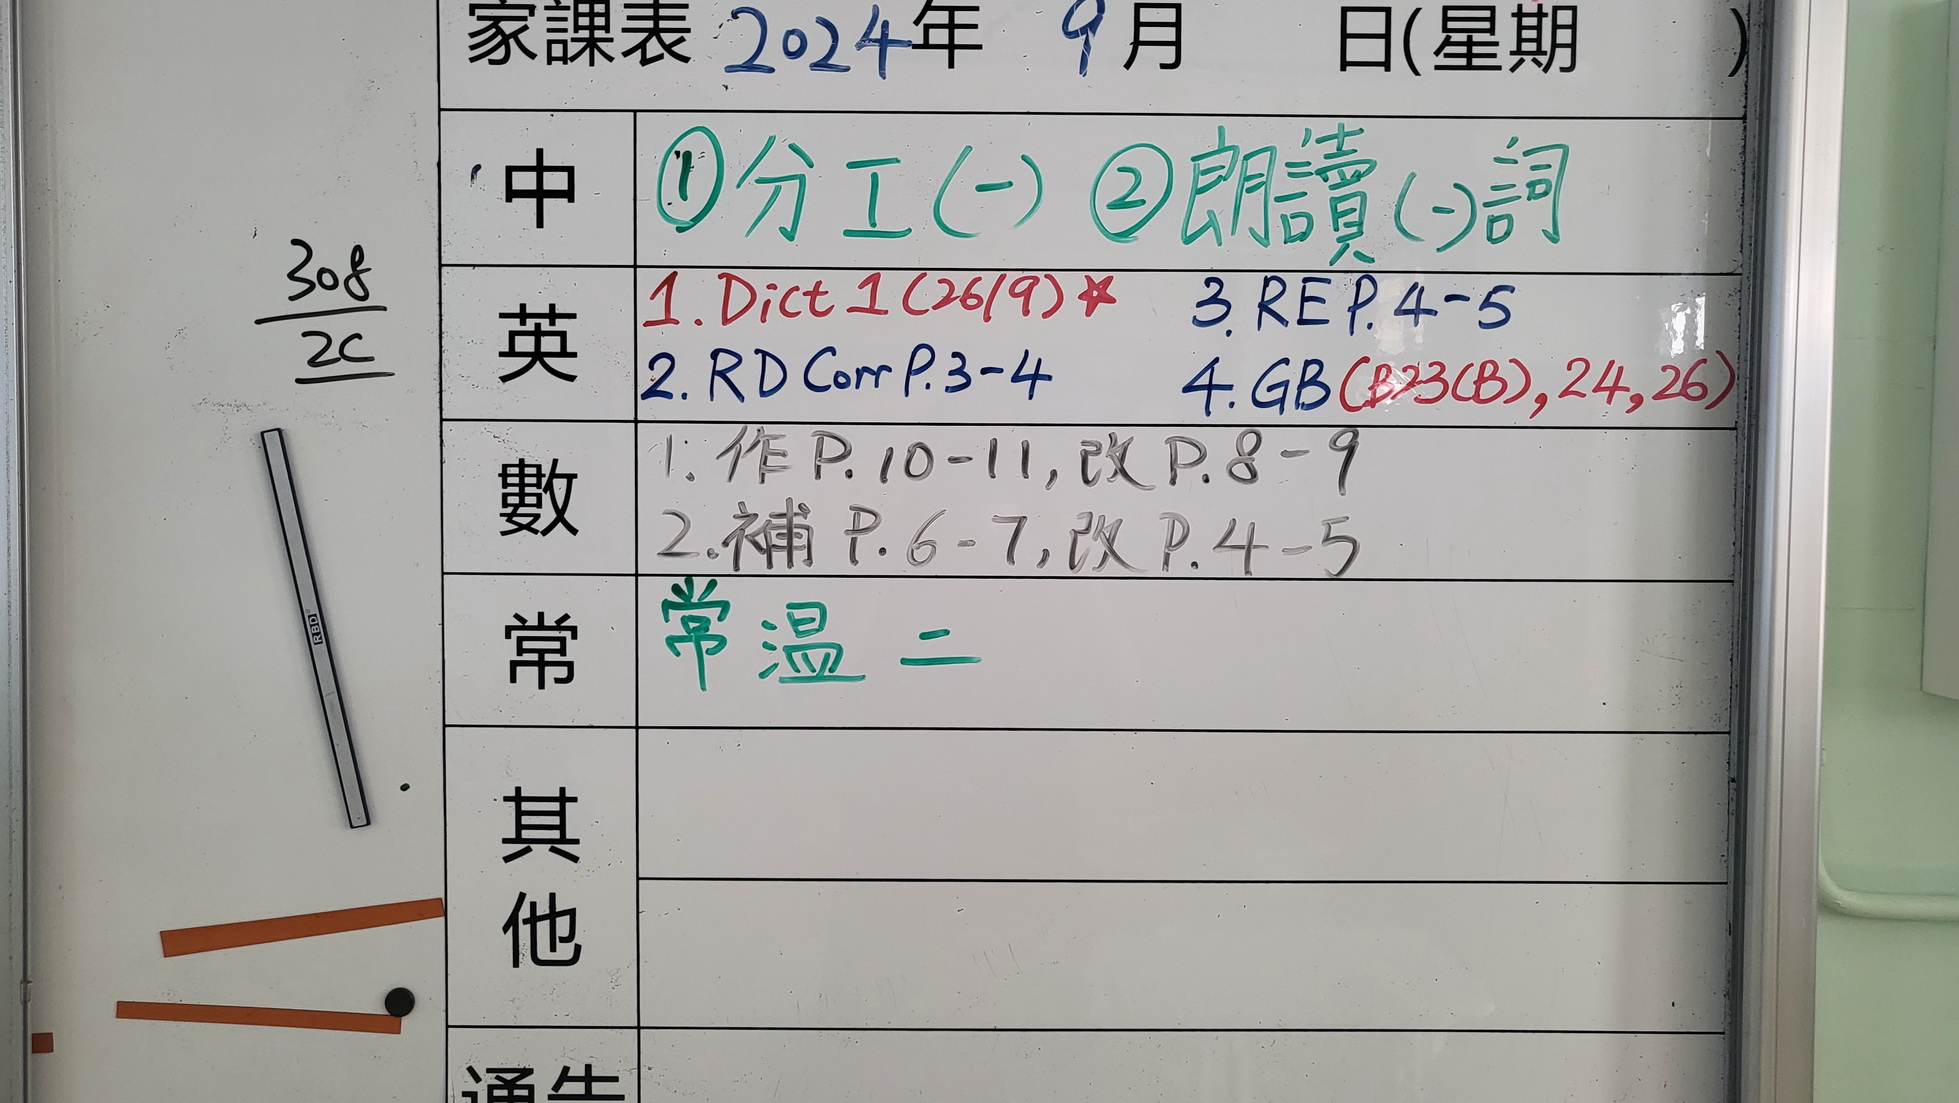 家課表 2024年 9月 日(星期 )
中 ①分工(一) ②朗讀(一)詞
英 1. Dict 1 (26/9)★ 3. RE P. 4-5
2. RD Corr P. 3-4 4. GB (P.23(B), 24, 26)
數 1. 作 P. 10-11, 改 P. 8-9
2. 補 P. 6-7, 改 P. 4-5
常 常温二
其他
通告
308
2C
RBD